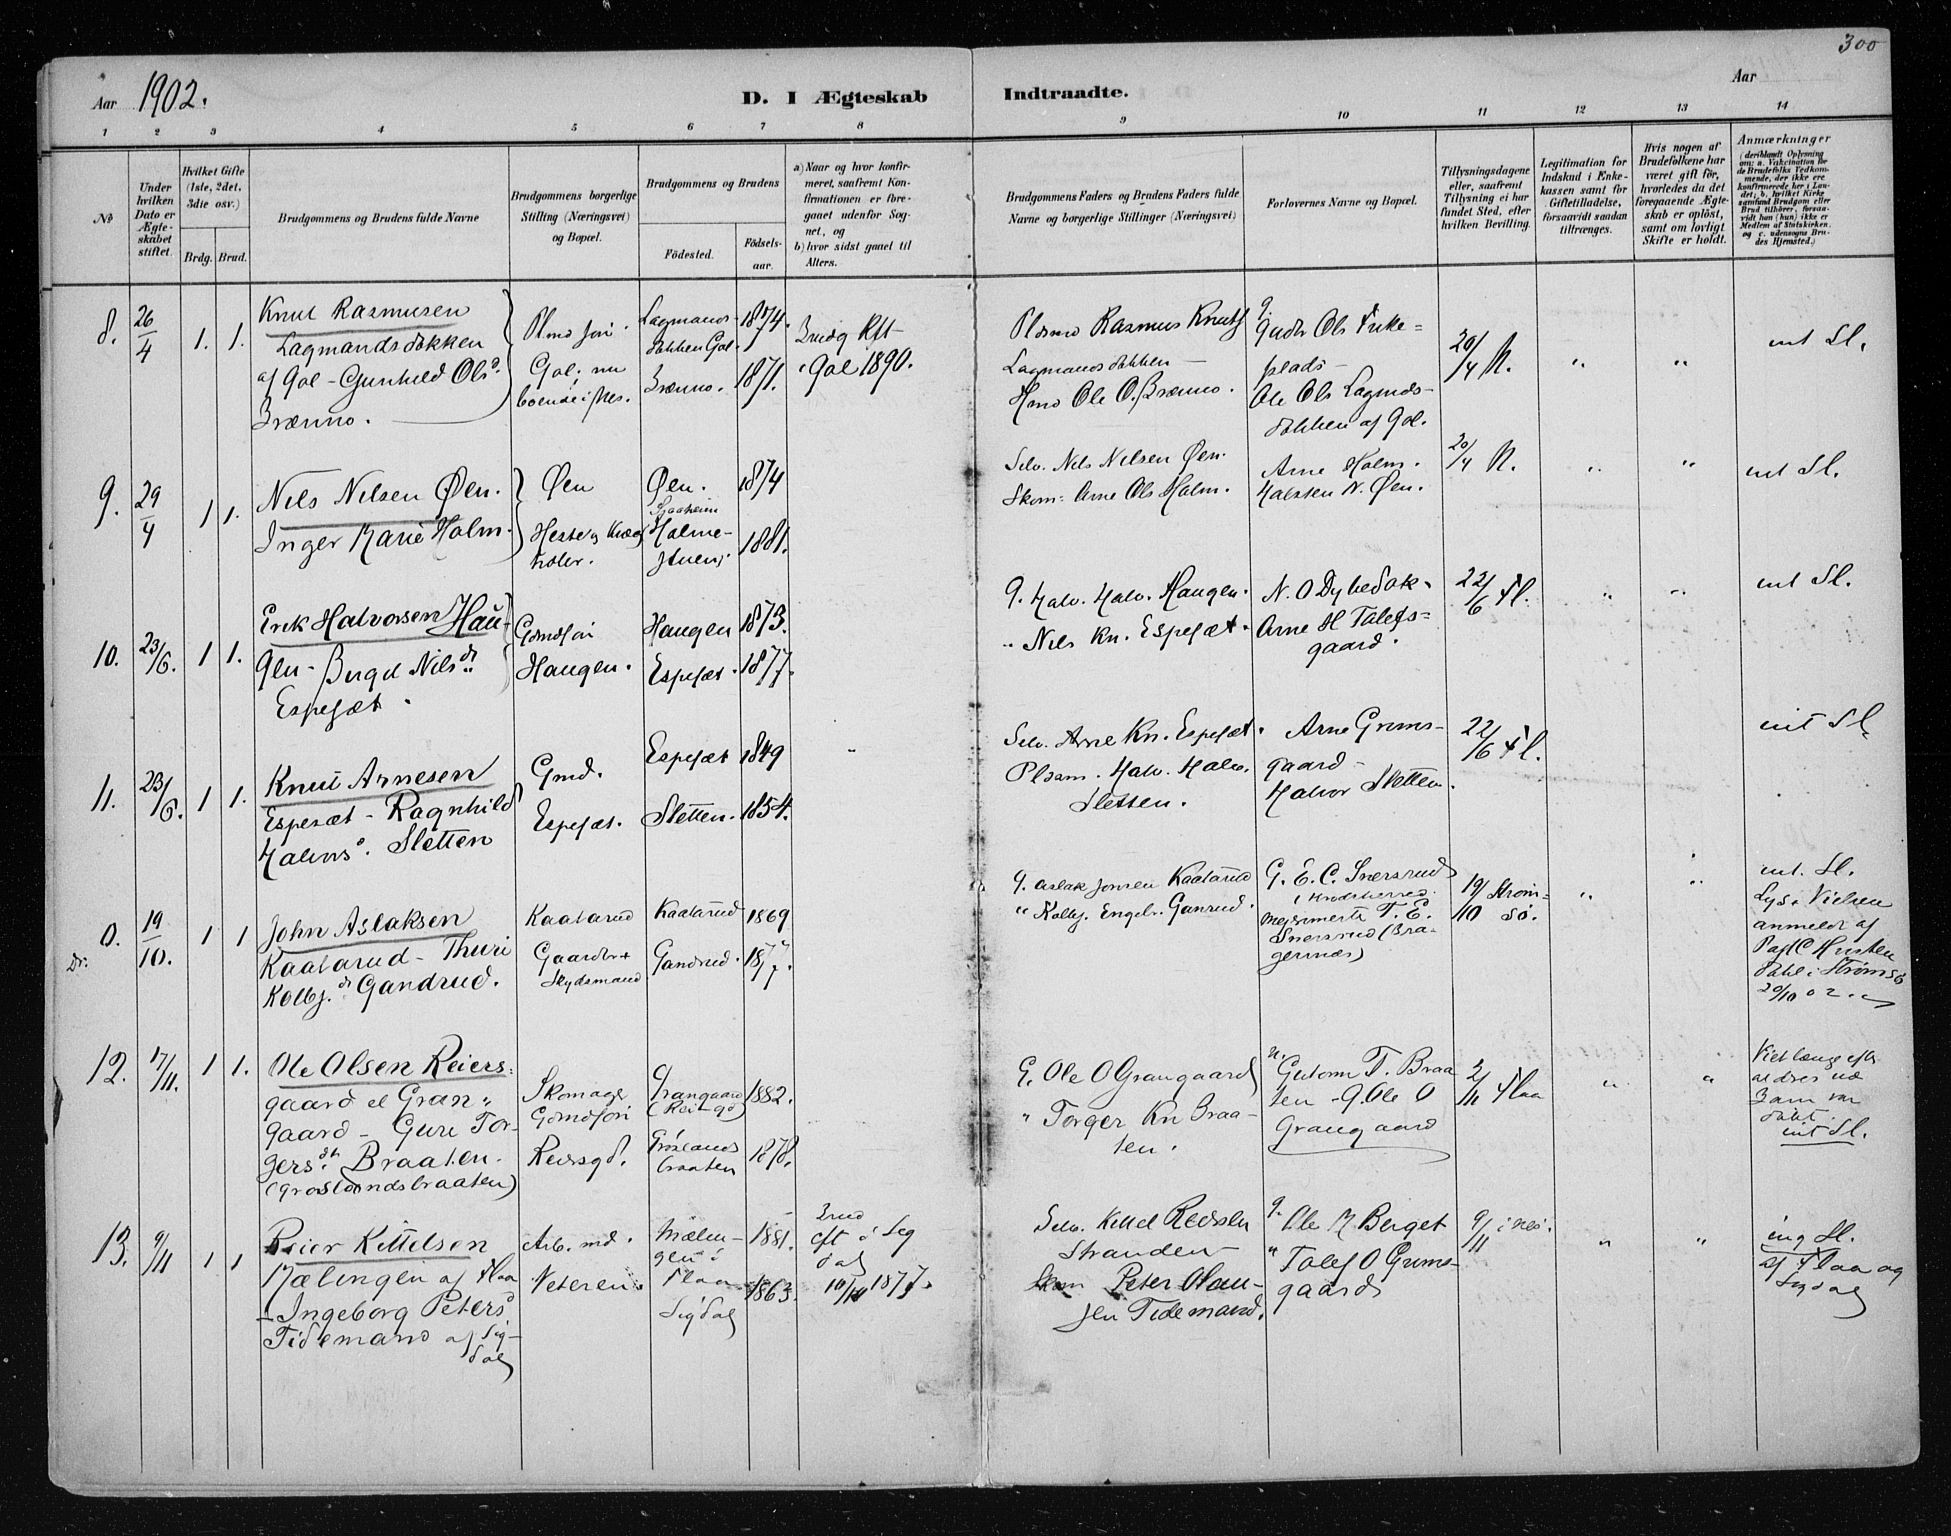 300
Aar 1902.
D. I Ægteskab Indtraadte.
Aar
1 2 3 4 5 6 7 8 9 10 11 12 13 14
No
Under hvilken Dato er Ægteskabet stiftet.
Hvilket Gifte (1ste, 2det, 3die osv.)
Brdg. Brud.
Brudgommens og Brudens fulde Navne
Brudgommens borgerlige Stilling (Næringsvei) og Bopæl.
Brudgommens og Brudens
Fødested.
Fødselsaar.
a) Naar og hvor konfirmeret, saafremt Konfirmationen er foregaaet udenfor Sognet, og
b) hvor sidst gaaet til Alters.
Brudgommens Faders og Brudens Faders fulde Navne og borgerlige Stillinger (Næringsvei)
Forlovernes Navne og Bopæl.
Tillysningsdagene eller, saafremt Tillysning ei har fundet Sted, efter hvilken Bevilling.
Legitimation for Indskud i Enkekassen samt for Giftetilladelse, forsaavidt saadan tiltrænges.
Hvis nogen af Brudefolkene har været gift før, hvorledes da det foregaaende Ægteskab er opløst, samt om lovligt Skifte er holdt.
Anmærkninger
(deriblandt Oplysning om: a. Vakcination for de Brudefolks Vedkommende, der ikke ere konfirmerede her i Landet, b. hvilket Kirkesamfund Brudgom eller Brud tilhører, forsaavidt han (hun) ikke er Medlem af Statskirken, og c. udensogns Brudes Hjemsted.)
8. 26/4 1. 1.
Knut Rasmusen
Lagmandsdokken
af Gol - Gunhild Olsd.
Brænno.
Plmd
Gol; nu
boende i Nes.
Lagmands-
dokken Gol. 1874.
Brænno. 1871.
Brudg Kft
Gol 1890.
Plasmd Rasmus Knuts
Lagmandsdokken
Hmd Ole O. Brænno.
Gudbr Ols
plads -
Ole Ols Lagmds-
dokken af Gol.
20/4 N.
" "
int Sl.
9. 29/4 1 1.
Nils Nilsen Øen.
Inger Marie Holm.
Øen
Heste og Kræg
Øen. 1874
Holme-
1881.
Selv. Nils Nilsen Øen.
Skom: Arne Ols Holm.
Arne Holm.
Halsten N. Øen.
20/4 N.
" "
int Sl.
10. 23/6. 1 1.
Erik Halvorsen Hau-
gen - Birgit Nilsdt
Espesæt.
Haugen.
Haugen 1873.
Espesæt. 1877.
G. Halv. Halv. Haugen.
" Nils Kn. Espesæt.
N. O Dybedok.
Arne H Tolefs-
gaard.
22/6 Fl.
" "
int Sl.
11. 23/6. 1 1.
Knut Arnesen
Espesæt - Ragnhild
Halvorsd. Sletten
Gmd.
Espesæt.
Espesæt 1849
Sletten. 1854.
"
Selv. Arne Kn. Espesæt.
Plasm. Halv. Halv.
Sletten.
Arne Grims-
gaard -
Halvor Sletten.
22/6 Fl.
int Sl.
0. 19/10. 1 1
John Aslaksen
Kaatarud - Thuri
Kolbj.dt Gandrud.
Kaatarud
Gaardbr +
Skydsmand
Kaatarud 1869
Gandrud. 1877.
G. Aslak Jonsen Kaatarud
" Kolbj. Engebr. Ganrud.
G. E. C. Snersrud
i Krødsherred.
T. E.
Snersrud (Bra-
gernæs)
19/10 Strøm-
sø.
" "
int. Sl.
Lyst Vielsen
anmeldt af
Dahl i Strømsø
20/10 02.
12. 17/11. 1 1.
Ole Olsen Reiers-
gaard el Gran-
gaard - Guri Tor-
gersdt. Braaten.
(Groslandsbraaten)
Skomager
Reiersgd.
Grangaard
(Reiersgd) 1882.
Grøslands
braaten 1878.
G. Ole O Grangaard
" Torger Kn Braa-
ten.
Guttorm T. Braa
ten - G. Ole O
Grangaard
2/11 Flaa
" "
Viet længe efter
at deres
Barn var
døbt.
int Sl.
13. 9/11 1 1
Reier Kittelsen
Mælingen af Flaa
- Ingeborg Petersd
Tidemand af Sig-
dal
Arb. md.
Veteren.
Mælen-
gen i
Flaa 1881.
Sigdal 1863.
Brud
kft i Sig
dal
10/10 1877.
Selv. Kittel Reiersen
Stranden
Skom Peter Olau-
sen Tidemand.
Ole N Berget
" Tolef O Grims-
gaard
9/11 i Nes.
" "
ing Sl.
af Flaa og
Sigdal